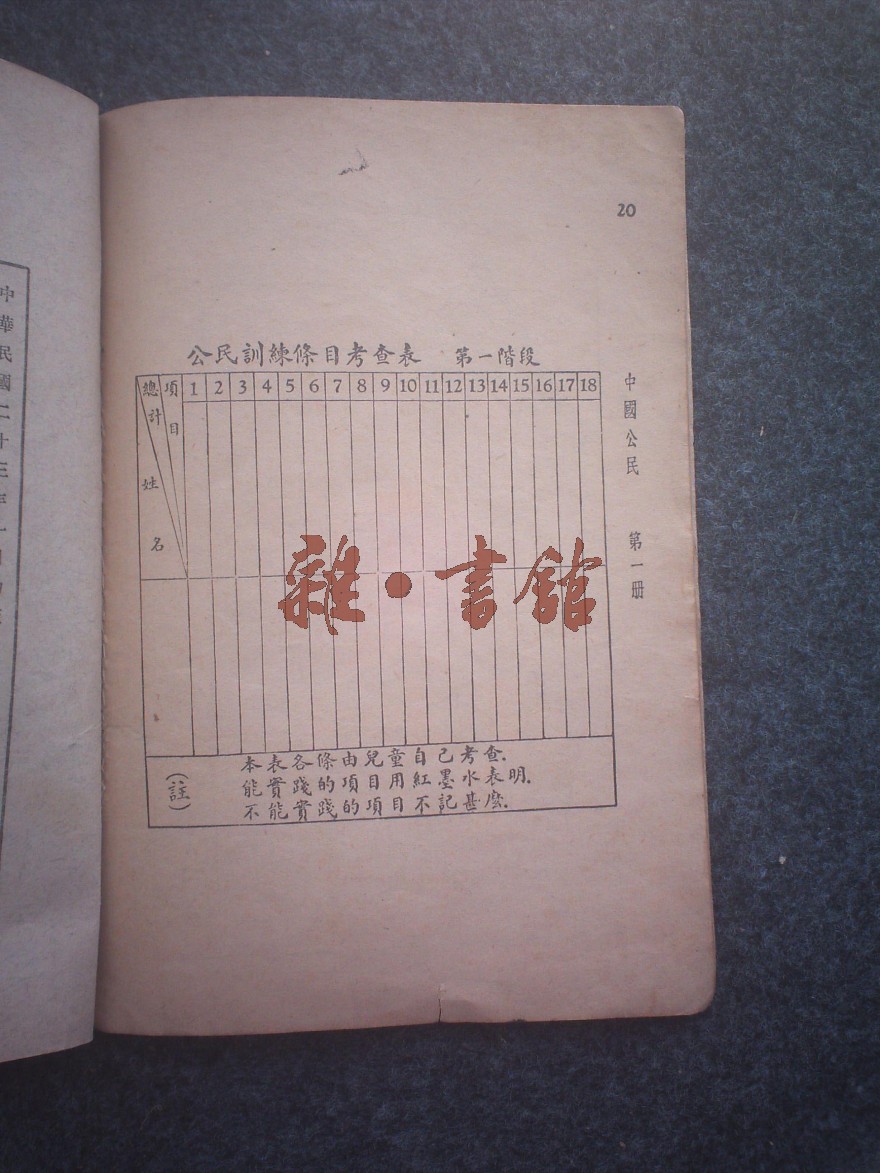 20
中國公民 第一册
公民訓練條目考查表 第一階段
總計 項目 1 2 3 4 5 6 7 8 9 10 11 12 13 14 15 16 17 18
姓名
雜·書館
(註)
本表各條由兒童自己考查.
能實踐的項目用紅墨水表明.
不能實踐的項目不記甚麽.
中華民國二十三年一月